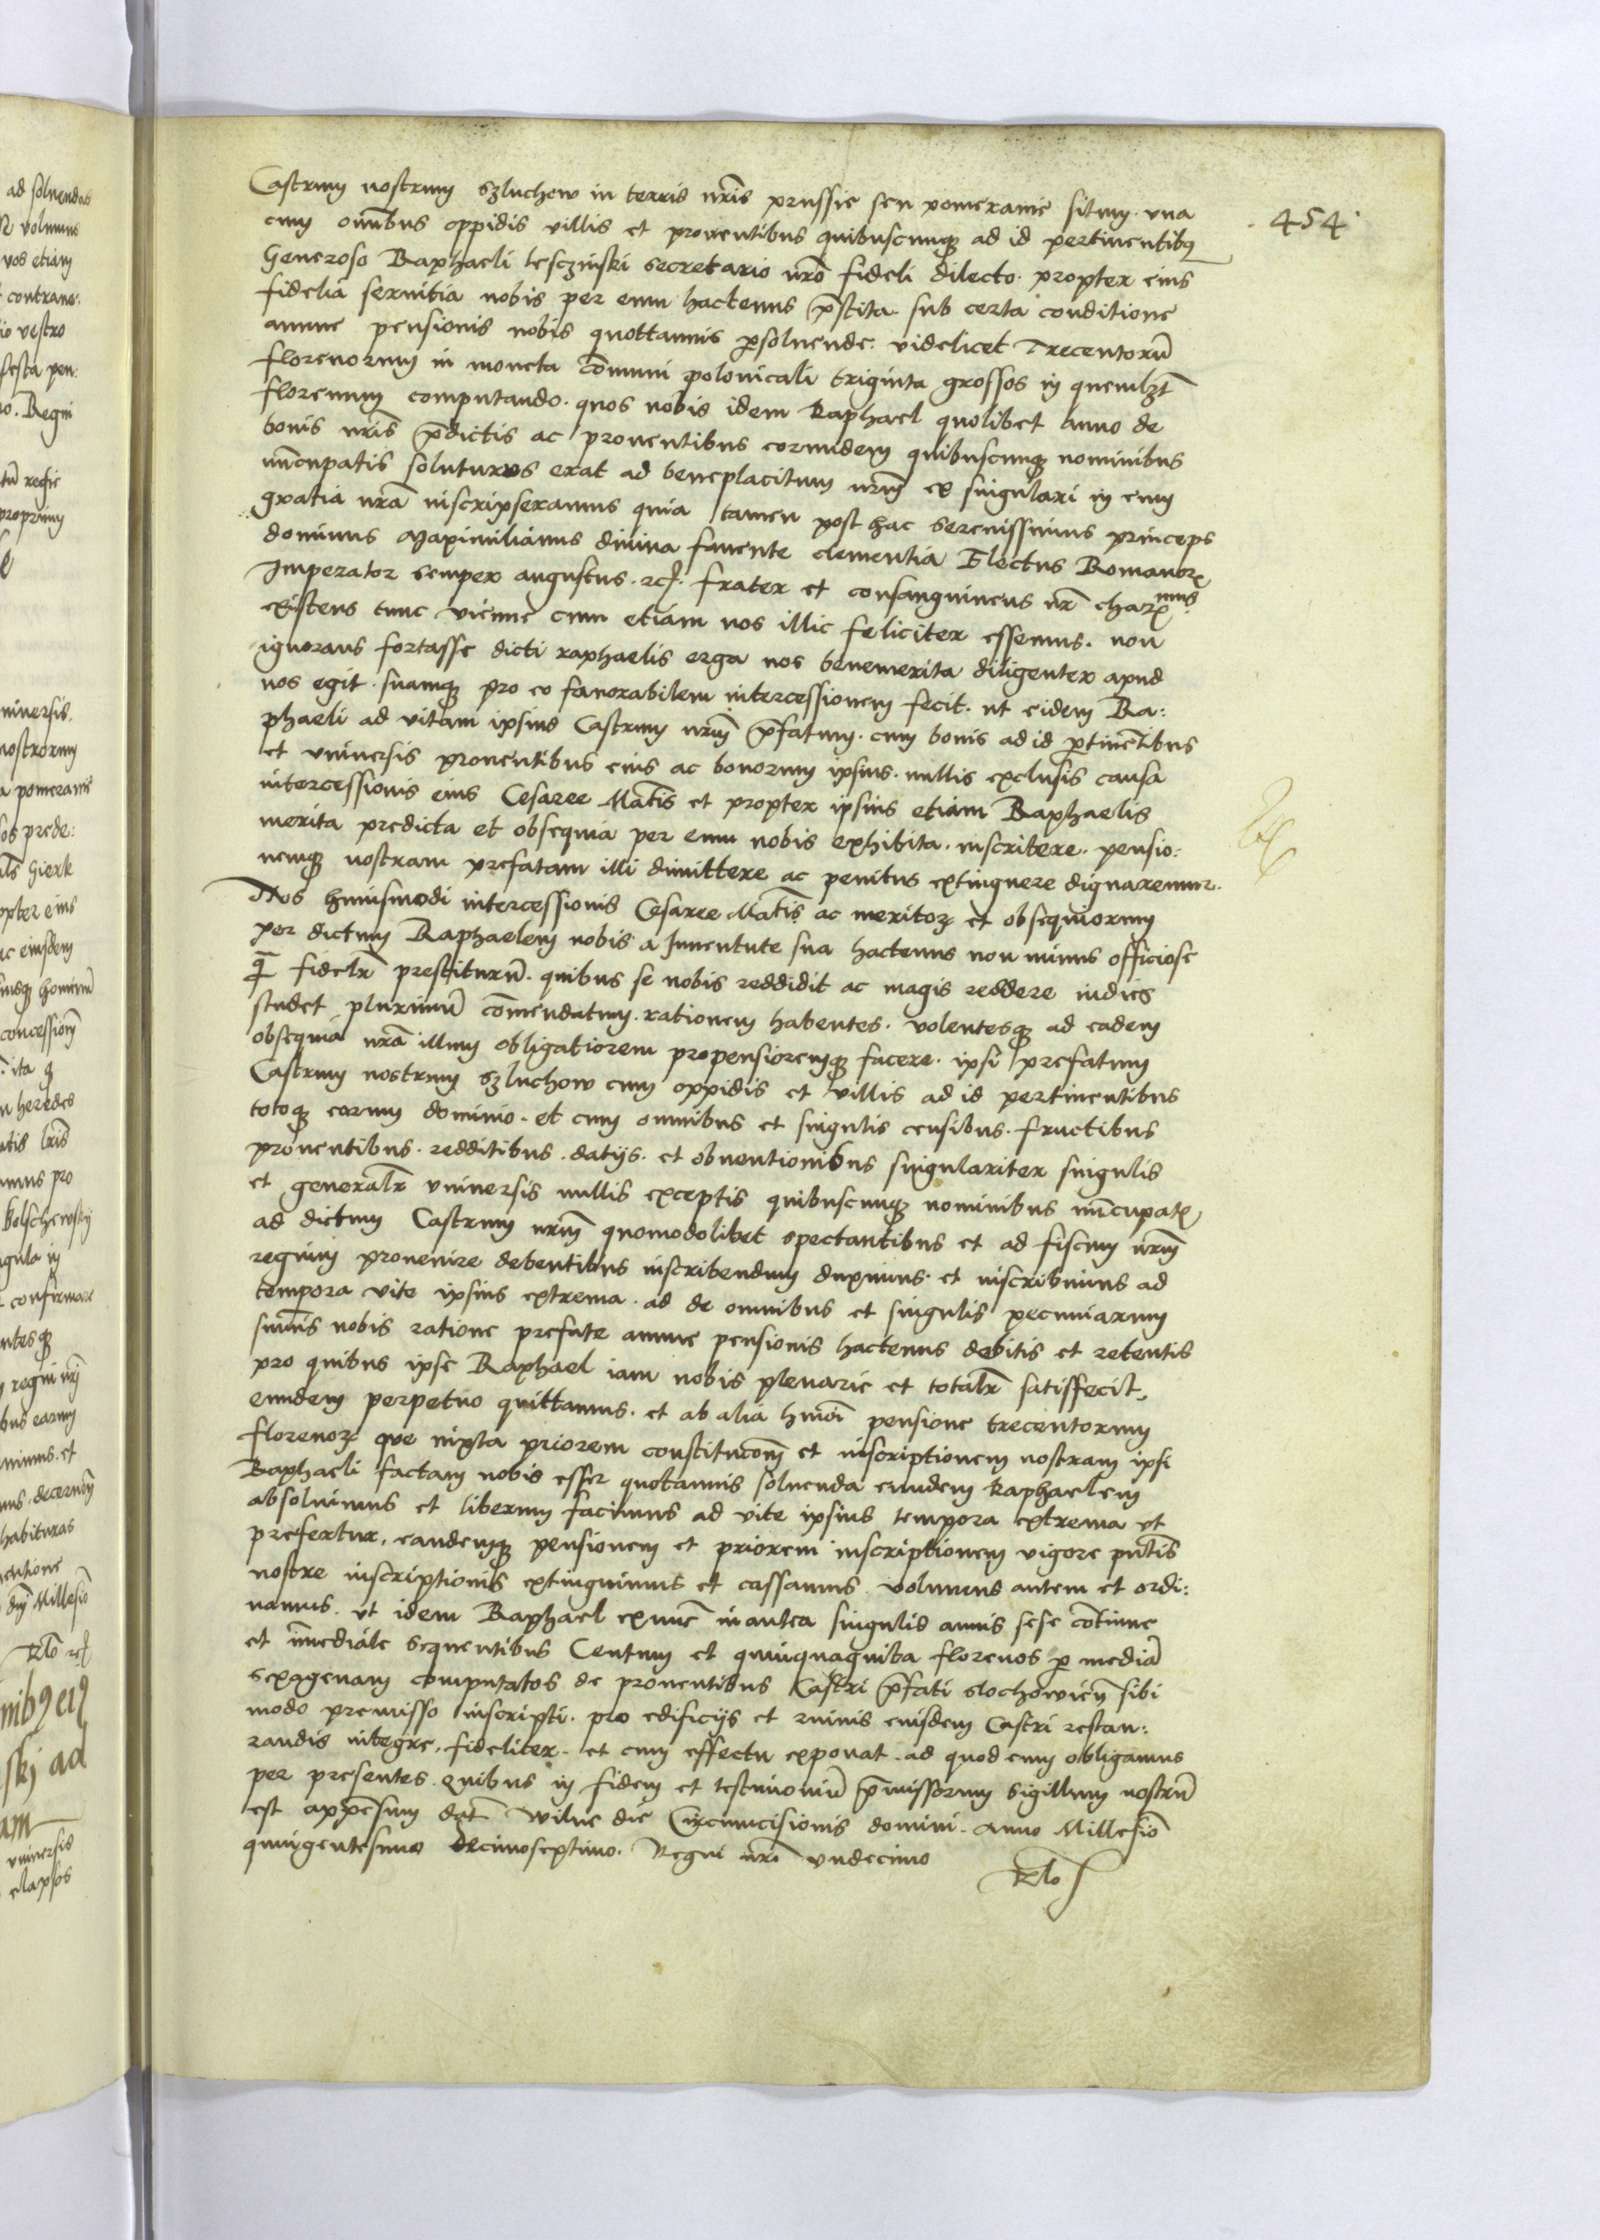 454
Castrum nostrum Szluchow in terris nr̃is prussie seu pomeranie situm. vna
cum om̃ibus oppidis villis et prouentibus quibuscumq̃ ad id pertinentibq
Generoso Raphaeli lesczinski secretario nr̃o fideli dilecto. propter eius
fidelia seruitia nobis per eum hactenus p̃stita. sub certa conditione
annue pensionis nobis quottannis p̱soluende. videlicet Trecentorũ
florenorum in moneta cõmuni polonicali triginta grossos in quemlz̃t
florenum computando. quos nobis idem Raphael quolibet anno de
bonis nr̃is p̃dictis ac prouentibus eorundem quibuscumq̃ nominibus
nũcupatis soluturus erat ad beneplacitum nr̃um ex singulari in eum
gratia nr̃a inscripseramus quia tamen post hac serenissimus princeps
dominus Maximilianus diuina fauente clementia Electus Romanorꝝ
Imperator semper augustus. rc̃. frater et consanguineus nr̃ charꝝmus
existens tunc vienne cum etiam nos illic feliciter essemus. non
ignorans fortasse dicti raphaelis erga nos benemerita diligenter apud
nos egit. suamq̃ pro eo fauorabilem intercessionem fecit. ut eidem Ra:
phaeli ad vitam ipsius Castrum nr̃um p̃fatum. cum bonis ad id p̱tinẽtibus
et vniuersis prouentibus eius ac bonorum ipsius. nullis exclusis causa
intercessionis eius Cesaree Mat̃is et propter ipsius etiam Raphaelis
merita predicta et obsequia per eum nobis exhibita. inscribere. pensio:
nemq̃ nostram prefatam illi dimittere ac penitus extinguere dignaremur.
Nos huiusmodi intercessionis Cesaree Mat̃is ac meritoꝝ et obsequiorum
per dictum Raphaelem nobis a Iuuentute sua hactenus non minus officiose
q̃ fidelr̃ prestiturũ. quibus se nobis reddidit ac magis reddere indies
studet plurimũ cõmendatum. rationem habentes. volentesq̃ ad eadem
obsequia nr̃a illum obligatiorem propensioremq̃ facere. ipsi prefatum
Castrum nostrum Szluchow cum oppidis et villis ad id pertinentibus
totoq̃ eorum dominio. et cum omnibus et singulis censibus. fructibus
prouentibus. redditibus. datijs. et obuentionibus singulariter singulis
et generalr̃ vniuersis nullis exceptis quibuscumq̃ nominibus nũcupatꝭ
ad dictum Castrum nr̃um quomodolibet spectantibus et ad fiscum nr̃um
regium prouenire debentibus inscribendum duximus. et inscribimus ad
tempora vite ipsius extrema. ac de omnibus et singulis pecuniarum
sum̃is nobis ratione prefate annue pensionis hactenus debitis et retentis
pro quibus ipse Raphael iam nobis plenarie et totalr̃ satisfecit,
eundem perpetuo quittamus. et ab alia hm̃oi pensione trecentorum
florenoꝝ que iuxta priorem constitucõem et inscriptionem nostram ipsi
Raphaeli factam nobis esset quotannis soluenda eundem Raphaelem
absoluimus et liberum facimus ad vite ipsius tempora extrema ut
prefertur, eandemq̃ pensionem et priorem inscriptionem vigore pñtis
nostre inscriptionis extinguimus et cassamus. volumus autem et ordi:
namus. ut idem Raphael exnũc inantea singulis annis sese cõtinue
et im̃ediate sequentibus Centum et quinquaginta florenos p̱ mediã
sexagenam computatos de prouentibus Castri p̃fati slochowieñ sibi
modo premisso inscripti. pro edificijs et ruinis eiusdem Castri restau:
randis integre, fideliter. et cum effectu exponat. ad quod eum obligamus
per presentes. Quibus in fidem et testimoniũ p̃missorum Sigillum nostrũ
est appẽsum dat̃ Wilne die Circumcisionis domini. Anno Millesiõ
quingentesimo decimoseptimo. Regni nr̃i vndecimo